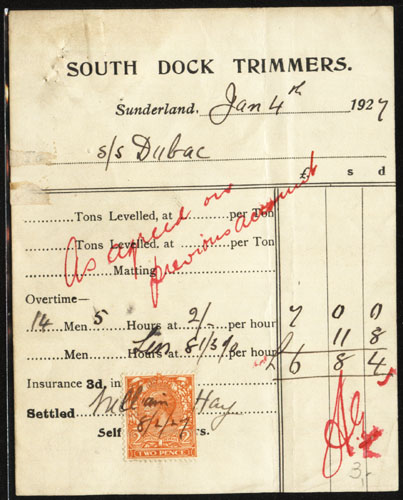 SOUTH DOCK TRIMMERS.
Sunderland, Jan 4th 1927
s/s Dubac
£ s d
Tons Levelled, at per Ton
Tons Levelled, at per Ton
Matting
As agreed on
previous account
Overtime—
14 Men 5 Hours at 2/- per hour 7 0 0
Men Hours at per hour 11 8
Less 8 1/3 %
£ 6 8 4
Insurance 3d. in
Settled William Hay
8/2/27
Self rs.
TWO PENCE
3-